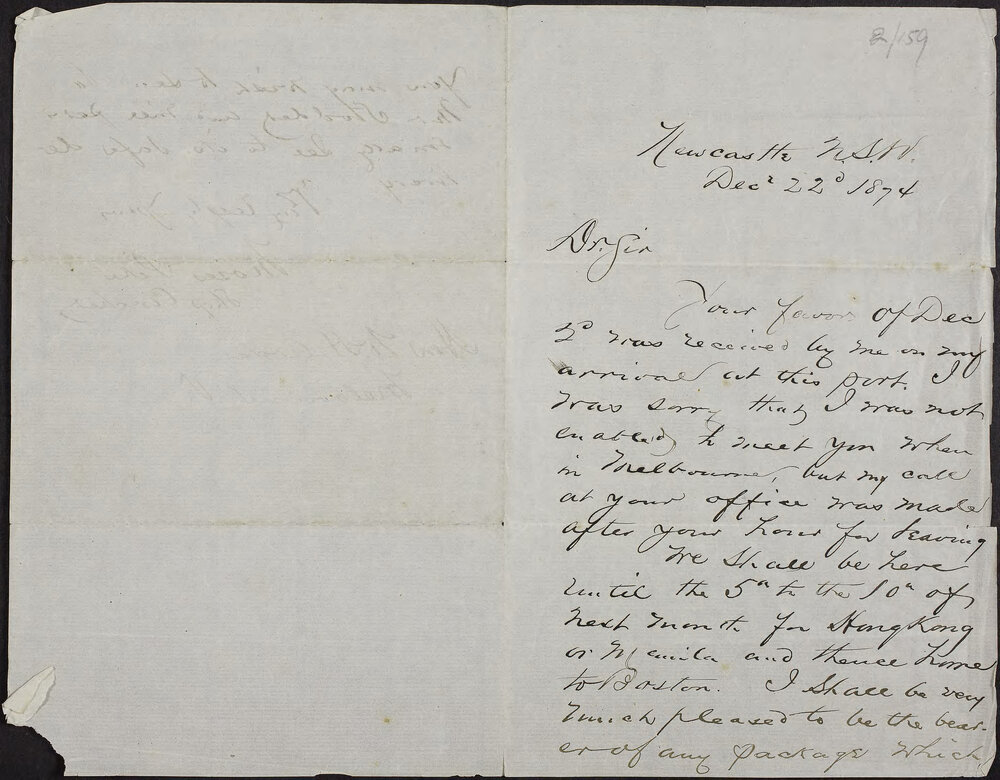 2/159
Newcastle N.S.W.
Decr 22d 1874
Dr. Sir
Your favor of Dec
2d was received by me on my
arrival at this port. I
was sorry that I was not
enabled to meet you when
in Melbourne, but my call
at your office was made
after your hour for leaving
We shall be here
until the 5th to the 10th of
next month for HongKong
or Manila and thence home
to Boston. I shall be very
much pleased to be the bear-
er of any package which
You may wish to send to